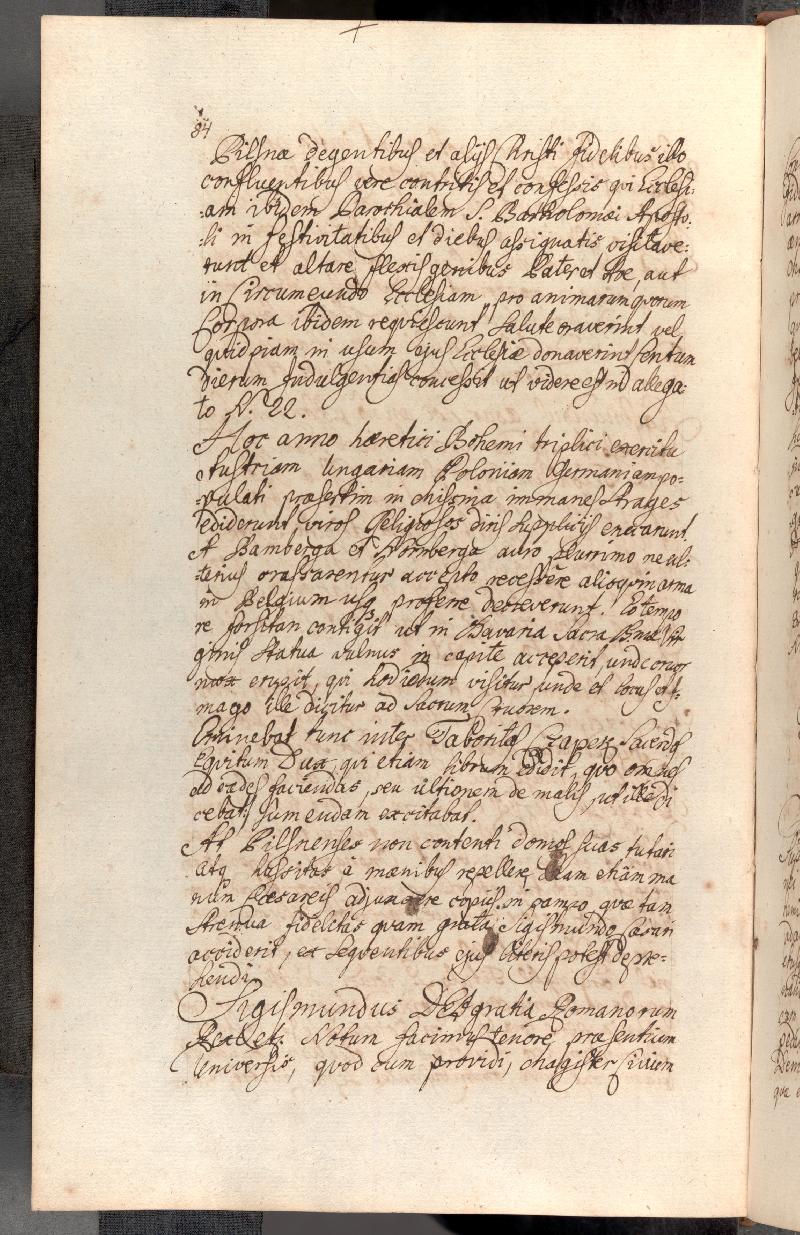 84
Pilsnæ degentibus et alijs Christi fidelibus illo
confluentibus vere contritis et confessis qui Ecclesi:
:am ibidem Parochialem S. Bartholomæi Aposto:
:li in festivitatibus et diebus assignatis visitave:
:runt et altare flexis genibus Pater et Ave, aut
in Circumeundo Ecclesiam, pro animarum quorum
Corpora ibidem requiescunt salute oraverint vel
quidpiam in usum ejus Ecclesiæ donaverint Centum
dierum Indulgentias concessit ut videre est ad allega:
to N. 22.
Hoc anno hæretici Bohemi triplici exercitu
Austriam Ungariam Poloniam Germaniam po=
=pulati præsertim in Misnia immanes strages
ediderunt, viros Religiosos diris supplicijs enecarunt.
A Bamberga et Normberga auro plurimo ne ul=
=terius grassarentur accepto recessere alioquin arma
in Belgium usq proferre decreverunt. Eo tempo
re forsitan contigit ut in Bavaria Sacra Bmæ Vir
ginis Statua vulnus in capite acceperit, unde cruor
mox erupit, qui hodiedum visitur unde et locus et I=
mago ille dicitur ad Sacrum Cruorem.
Eminebat tunc inter Taboritas Czapek Sacerdos
Equitum Dux, qui etiam librum edidit, quo omnes
ad cædes faciendas, seu ultionem de malis, ut ille di
cebat, sumendam excitabat.
At Pilsnenses non contenti domos suas tutari
atq Hussitas à mænibus repellere, etiam ma
num Cæsareis adjungere copiis in campo quæ tam
strenua fidelitas quam grata Sigismundo Cæsari
acciderit, ex sequentibus ejus literis potest depre=
hendi.
Sigismundus Dei gratia Romanorum
Rex etc. Notum facimus tenore præsentium
Universis, quod cum providi, Magister Civium